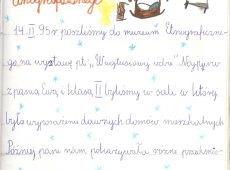 14.II.95r poszliśmy do muzeum Etnograficzne-
go na wystawę pt.:
z panią Ewą i klasą II byliśmy w sali w której
było wyposażenie dawnych domów mieszkalnych
Później pani nam pokazywała różne przedmio-